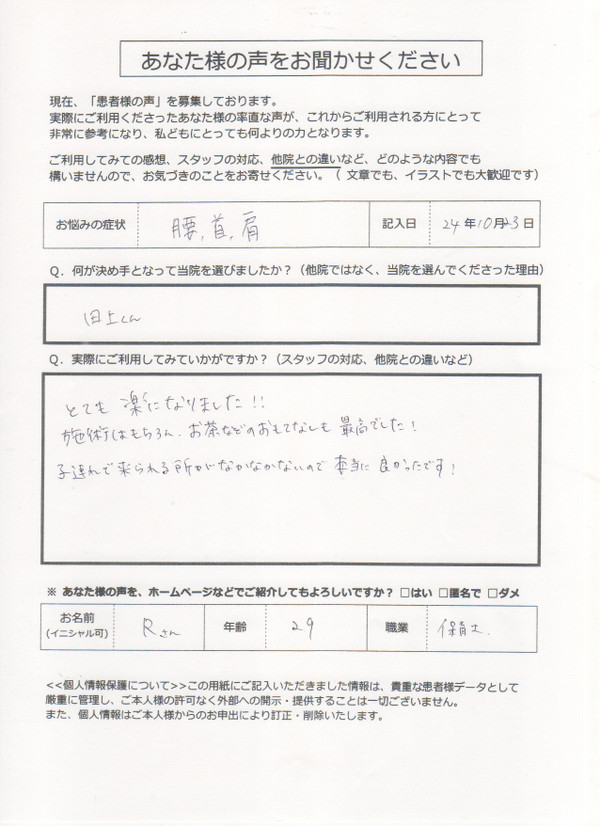 あなた様の声をお聞かせください
現在、「患者様の声」を募集しております。
実際にご利用くださったあなた様の率直な声が、これからご利用される方にとって
非常に参考になり、私どもにとっても何よりの力となります。
ご利用してみての感想、スタッフの対応、他院との違いなど、どのような内容でも
構いませんので、お気づきのことをお寄せください。（ 文章でも、イラストでも大歓迎です）
お悩みの症状 腰,首,肩 記入日 24年10月23日
Q．何が決め手となって当院を選びましたか？（他院ではなく、当院を選んでくださった理由）
田上くん
Q．実際にご利用してみていかがですか？（スタッフの対応、他院との違いなど）
とても 楽になりました!!
施術はもちろん、お茶などのおもてなしも 最高でした!
子連れで来られる所がなかなかないので 本当に 良かったです!
※ あなた様の声を、ホームページなどでご紹介してもよろしいですか？ □はい □匿名で □ダメ
お名前 (イニシャル可) Rさん 年齢 29 職業 保育士.
<<個人情報保護について>>この用紙にご記入いただきました情報は、貴重な患者様データとして
厳重に管理し、ご本人様の許可なく外部への開示・提供することは一切ございません。
また、個人情報はご本人様からのお申出により訂正・削除いたします。